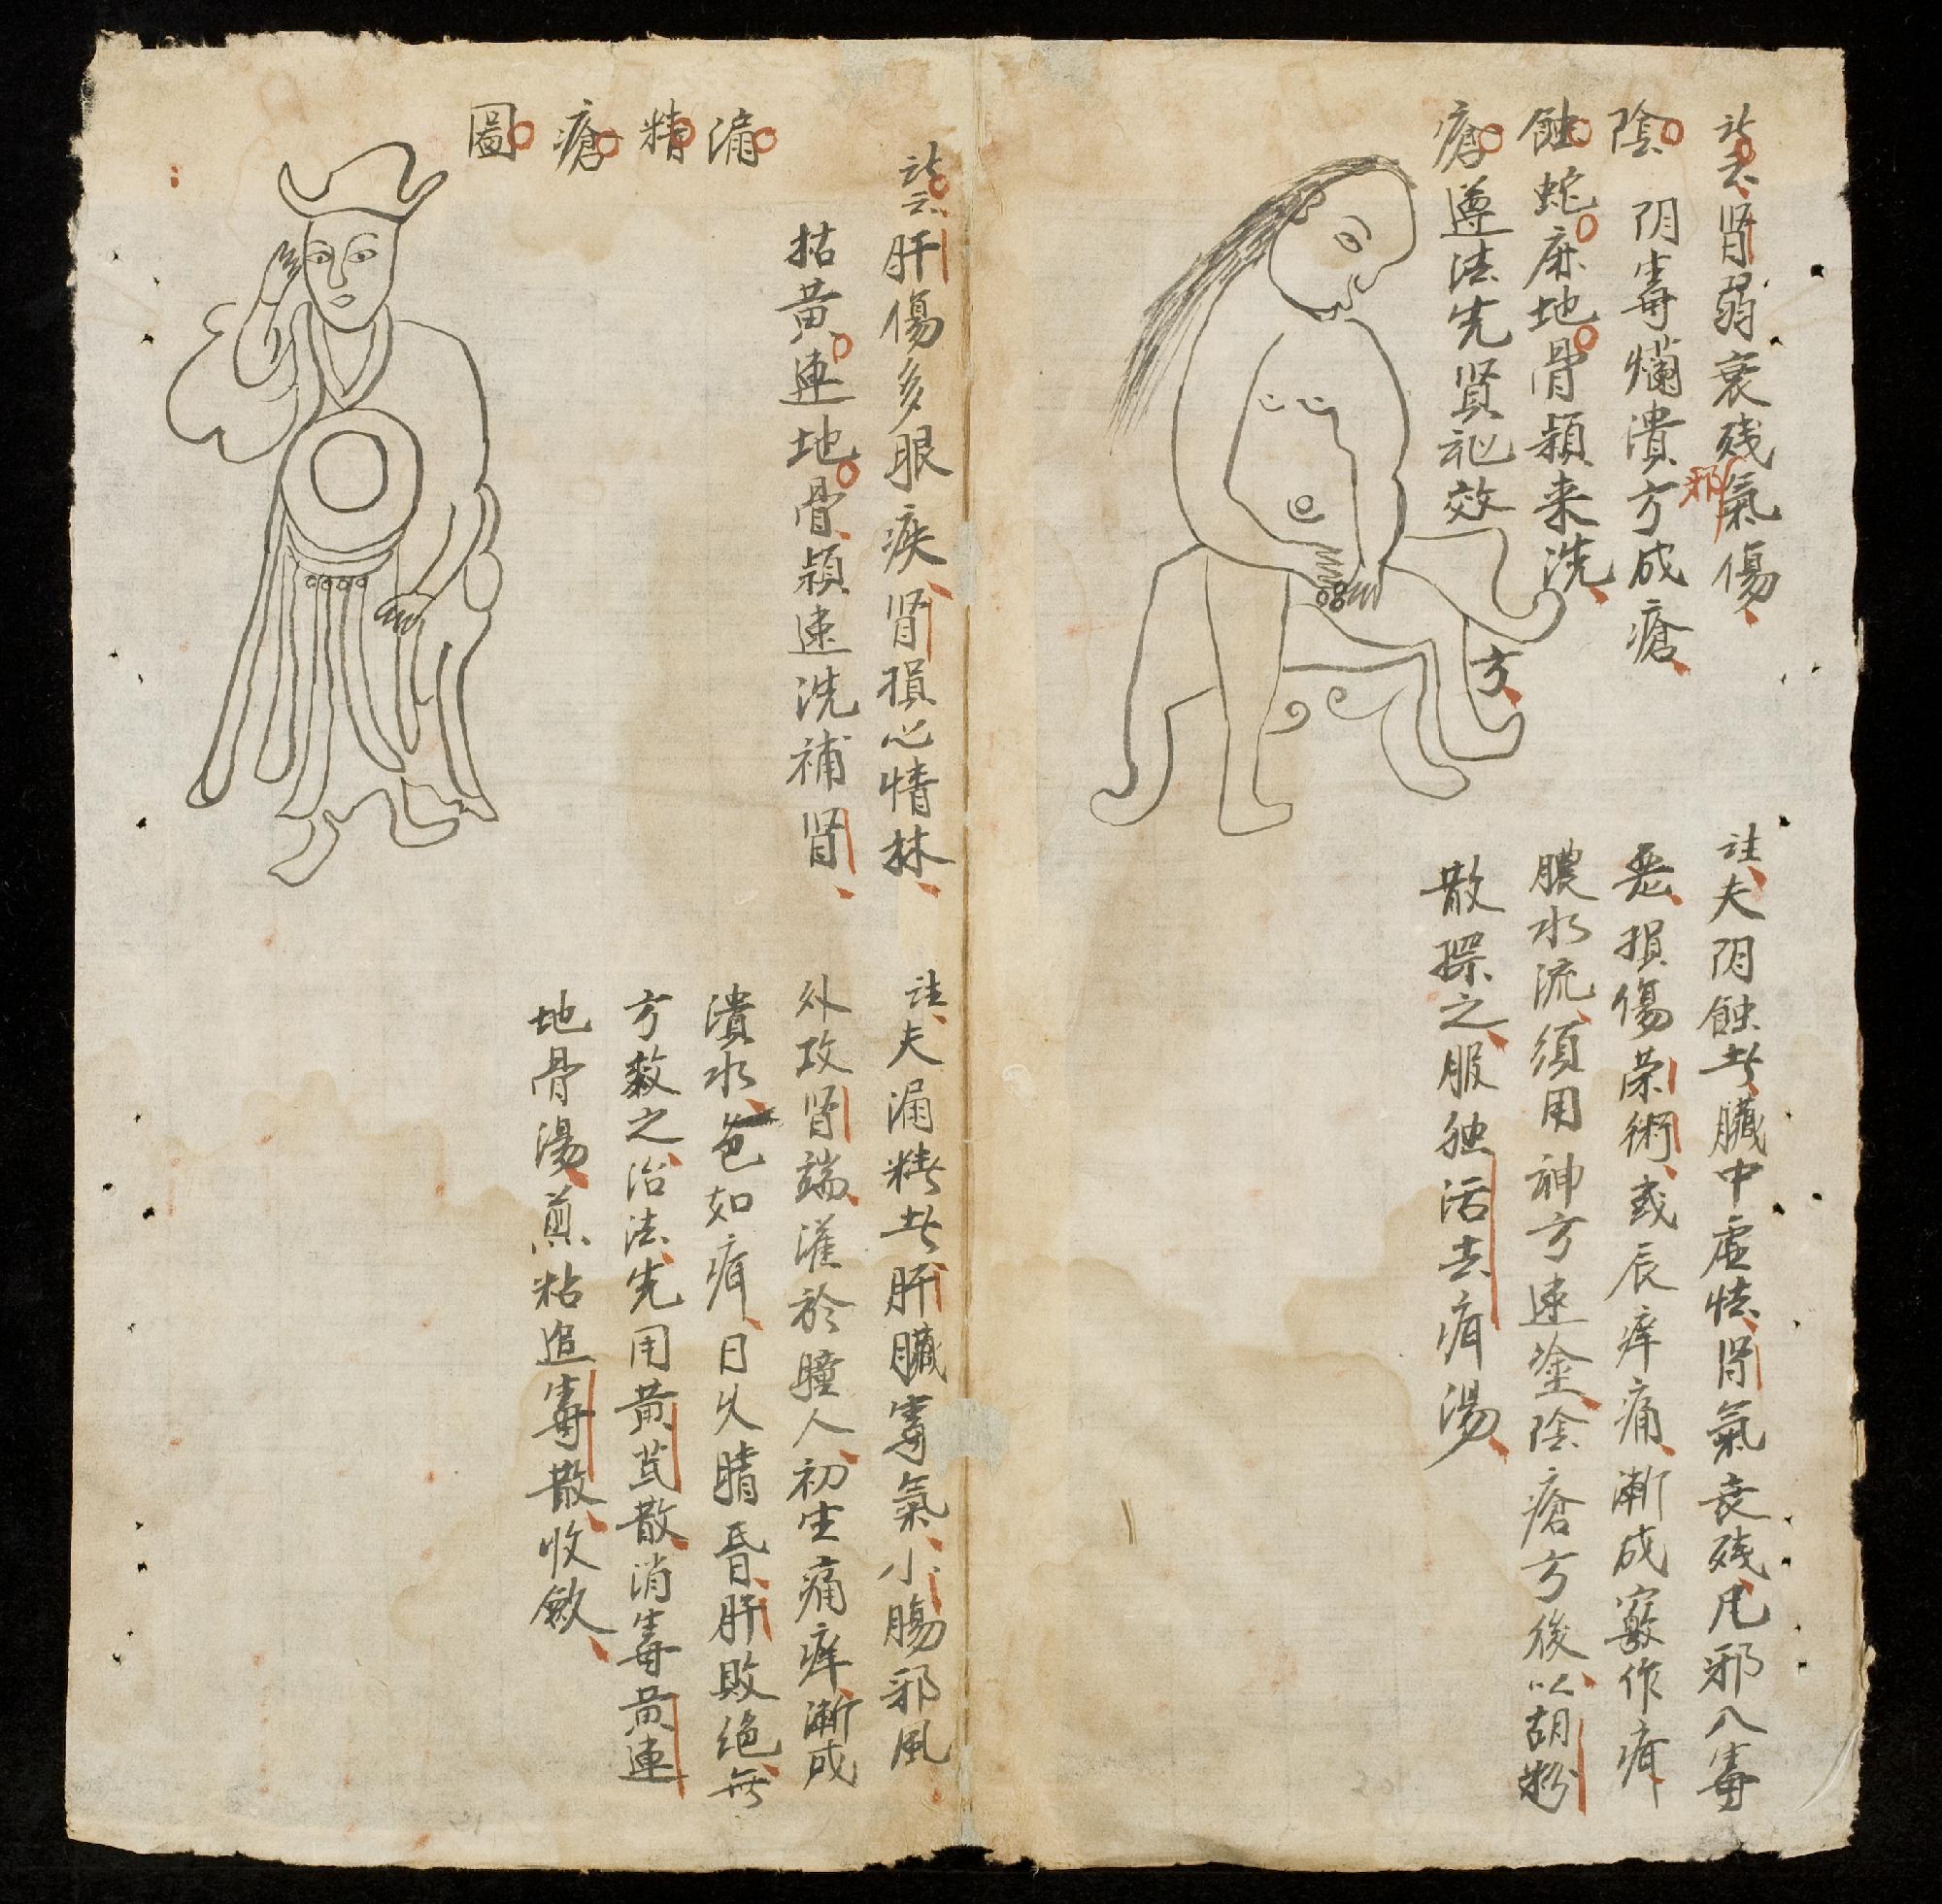 訣云肾弱衰残氣傷
邪
陰 阴毒爛潰方成瘡
蝕 蛇床地骨頻来洗
瘡 遵法先賢祕效
方
註夫阴蝕者臟中虚怯肾氣衰残凡邪八毒
惡損傷荣術或辰痒痛漸成竅作疳
膿水流須用神方速塗陰瘡方後以胡粉
散摻之服独活去疳湯
訣云肝傷多眼疾肾損心情
枯黄連地骨頻速洗補肾
漏精瘡圖
註夫漏精者肝臟毒氣小腸邪風
外攻肾端灌於瞳人初生痛痒漸成
潰水色如疳日久睛昏肝敗绝無
方救之治法先用黄芪散消毒黄連
地骨湯煎粘追毒散收斂